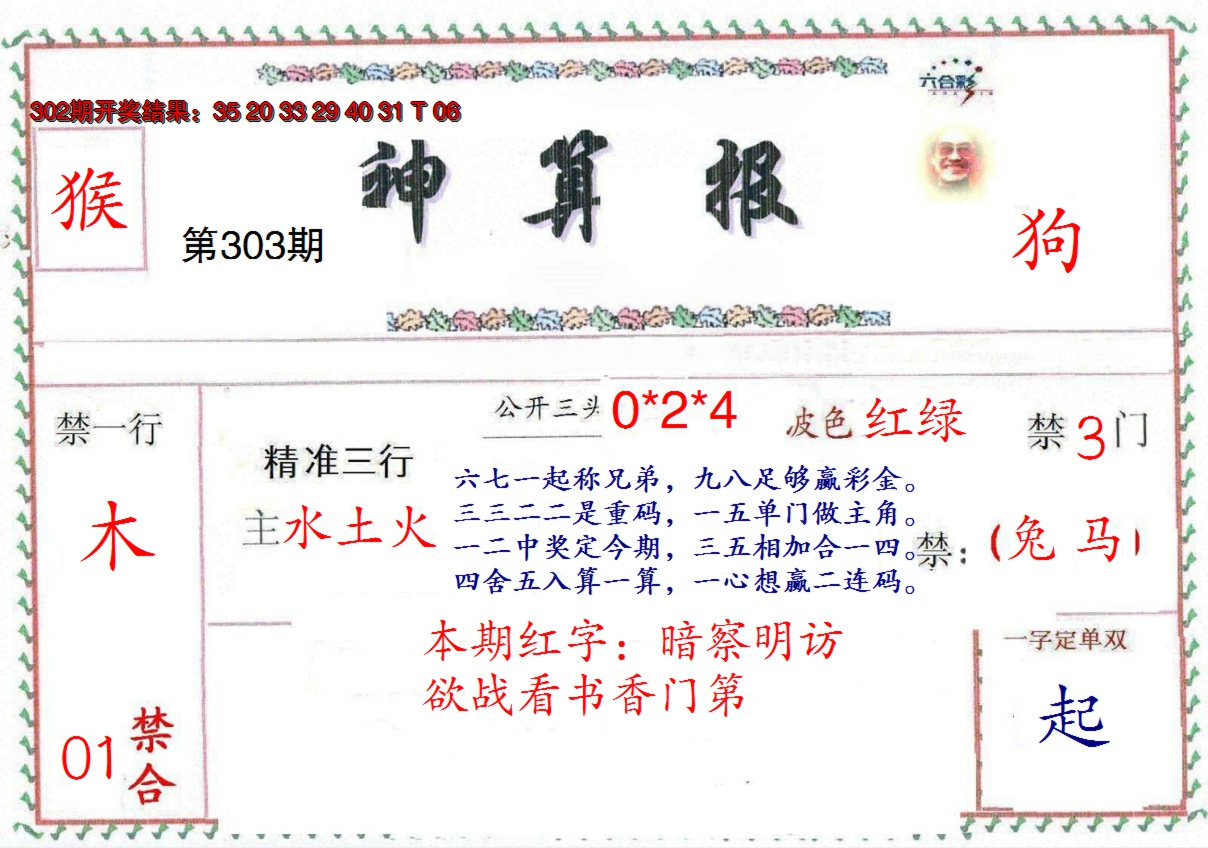 六合彩
302期开奖结果：35 20 33 29 40 31 T 06
神算报
猴
第303期
狗
公开三头 0*2*4
波色 红绿
禁一行
禁3门
精准三行
主水土火
六七一起称兄弟，九八足够赢彩金。
三三二二是重码，一五单门做主角。
一二中奖定今期，三五相加合一四。
四舍五入算一算，一心想赢二连码。
禁：（兔 马）
木
本期红字：暗察明访
欲战看书香门第
一字定单双
起
01
禁合